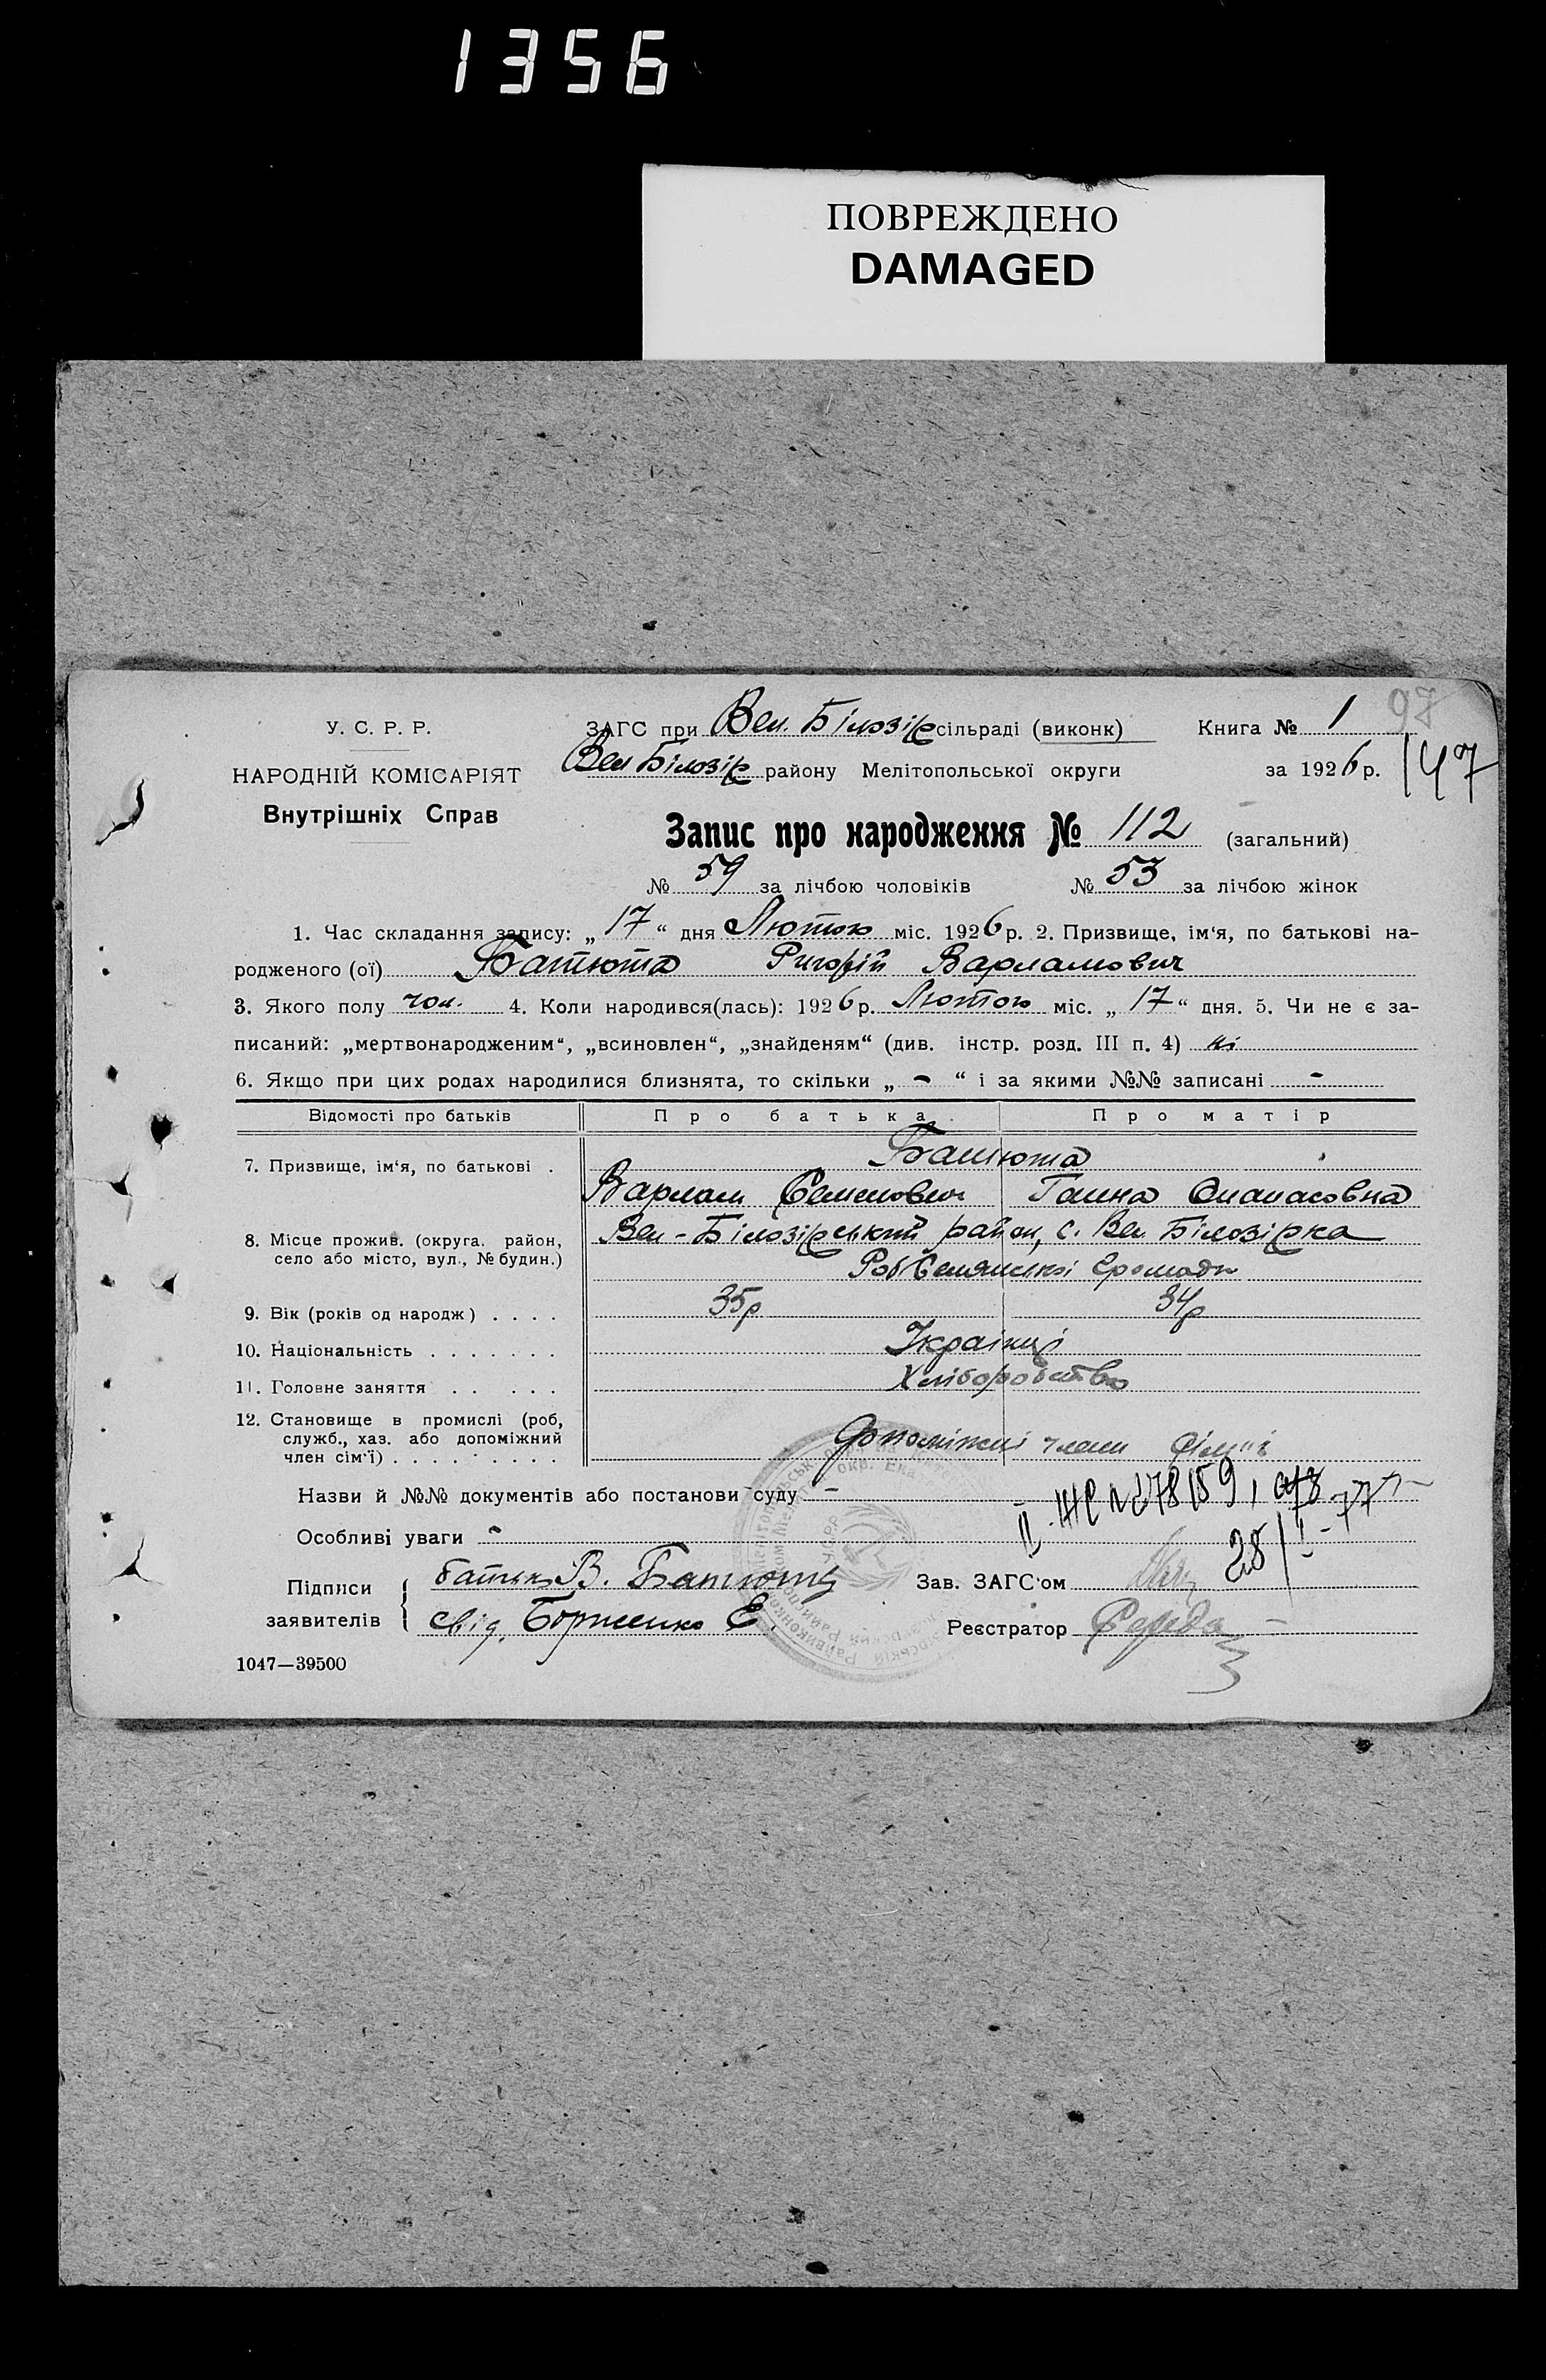 1356
ПОВРЕЖДЕНО
DAMAGED
97
У. С. Р. Р.
ЗАГС при Вел. Білозір сільраді (виконк) Книга № 1
НАРОДНІЙ КОМІСАРІЯТ
Вел Білозір району Мелітопольської округи за 1926 р. 147
Внутрішніх Справ
Запис про народження № 112 (загальний)
№ 59 за лічбою чоловіків № 53 за лічбою жінок
1. Час складання запису: „ 17 “ дня Лютого міс. 1926 р. 2. Призвище, ім‘я, по батькові на-
родженого (ої) Батюта Григорій Варламович
3. Якого полу чол. 4. Коли народився(лась): 1926 р. Лютого міс. „ 17 “ дня. 5. Чи не є за-
писаний: „мертвонародженим“, „всиновлен“, „знайденям“ (див. інстр. розд. III п. 4) ні
6. Якщо при цих родах народилися близнята, то скільки „ - “ і за якими №№ записані -
Відомості про батьків Про батька Про матір
7. Призвище, ім‘я, по батькові .
Батюта
Варлам Семенович Ганна Опанасовна
8. Місце прожив. (округа, район,
село або місто, вул., № будин.)
Вел-Білозірський район, с. Вел. Білозірка
Громади
9. Вік (років од народж) . . . . 35р 34р
10. Національність . . . . . . . Українці
11. Головне заняття . . . . . Хліборобство
12. Становище в промислі (роб,
служб., хаз. або допоміжний
член сім‘ї) . . . . . . . . .
допоміжні члени сім"ї
Назви й №№ документів або постанови суду -
278159,
28/I-77
Особливі уваги -
Підписи
заявителів
батько В. Батюта
свід. Борисенко Е.
Зав. ЗАГС‘ом
Реєстратор Середа
1047—39500